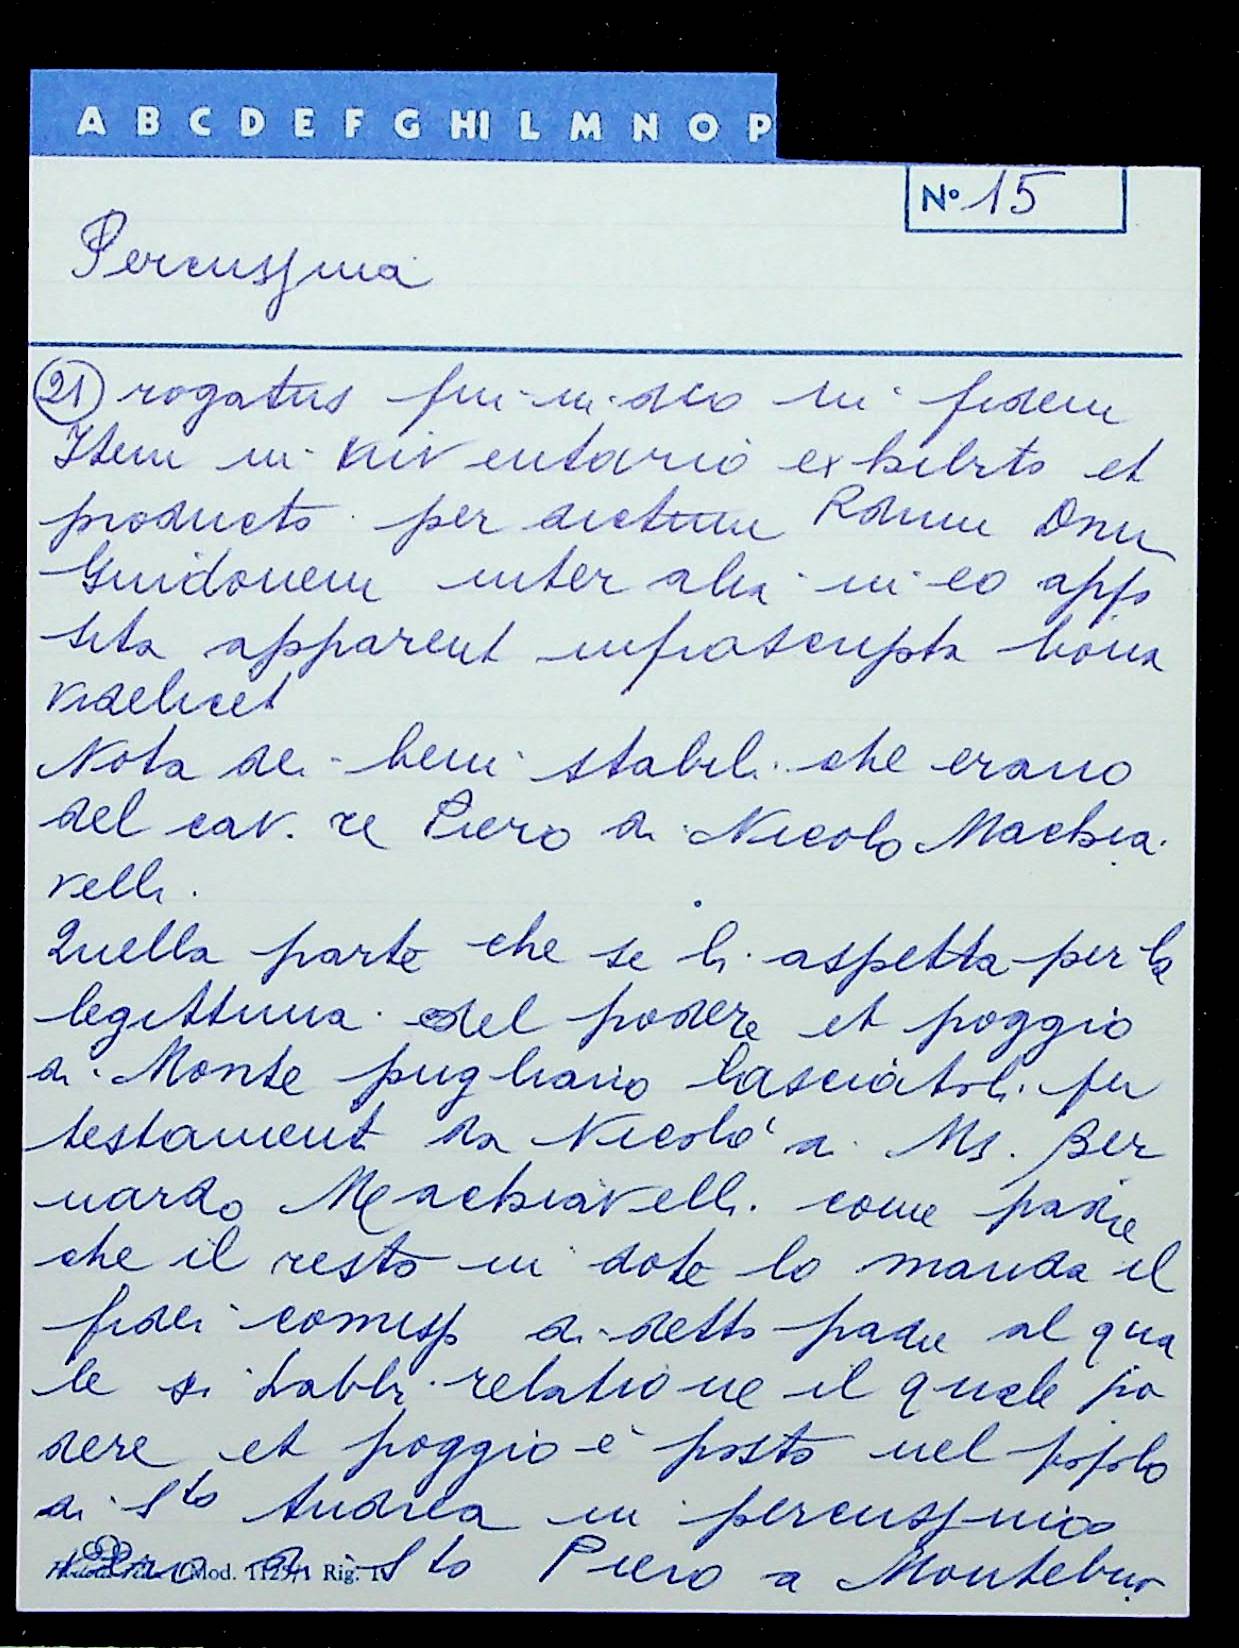 A B C D E F G HI L M N O P
Nº 15
Percussina
21 rogatus fui in dco in fidem
Item in inventario exhibito et
producto per dictum Rdum Dnu
Guidonem inter alia in eo appo
sita apparent infrascripta bona
videlicet
Nota dei beni stabili che erano
del cav. re Piero di Nicolo Machia
velli.
Quella parte che se li aspetta per la
legittima del podere et poggio
di Monte pugliano lasciatoli per
testament da Nicolo' a Ms. Ber
nardo Machiavelli come padre
che il resto in dote lo manda il
fidei comisso di detto padre al qua
le si habbi relatione il quale po
dere et poggio è posto nel popolo
di Sto Andrea in percussino
a Sto Piero a Montebuo
Mod. 1129/1 Rig. 1